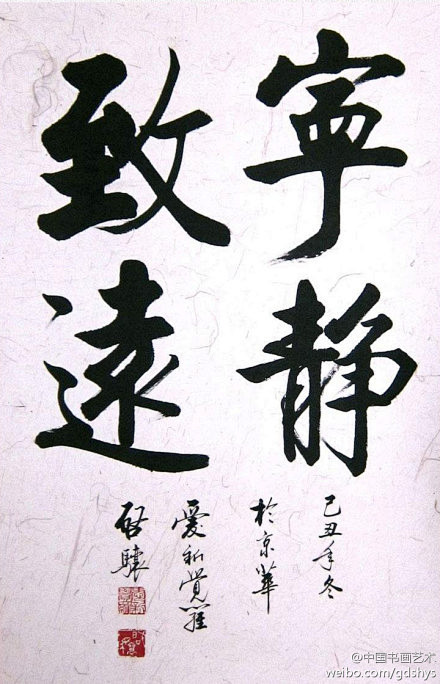 寧静
致遠
己丑年冬
於京華
愛新覺羅
啓驤
@中国书画艺术
weibo.com/gdshys